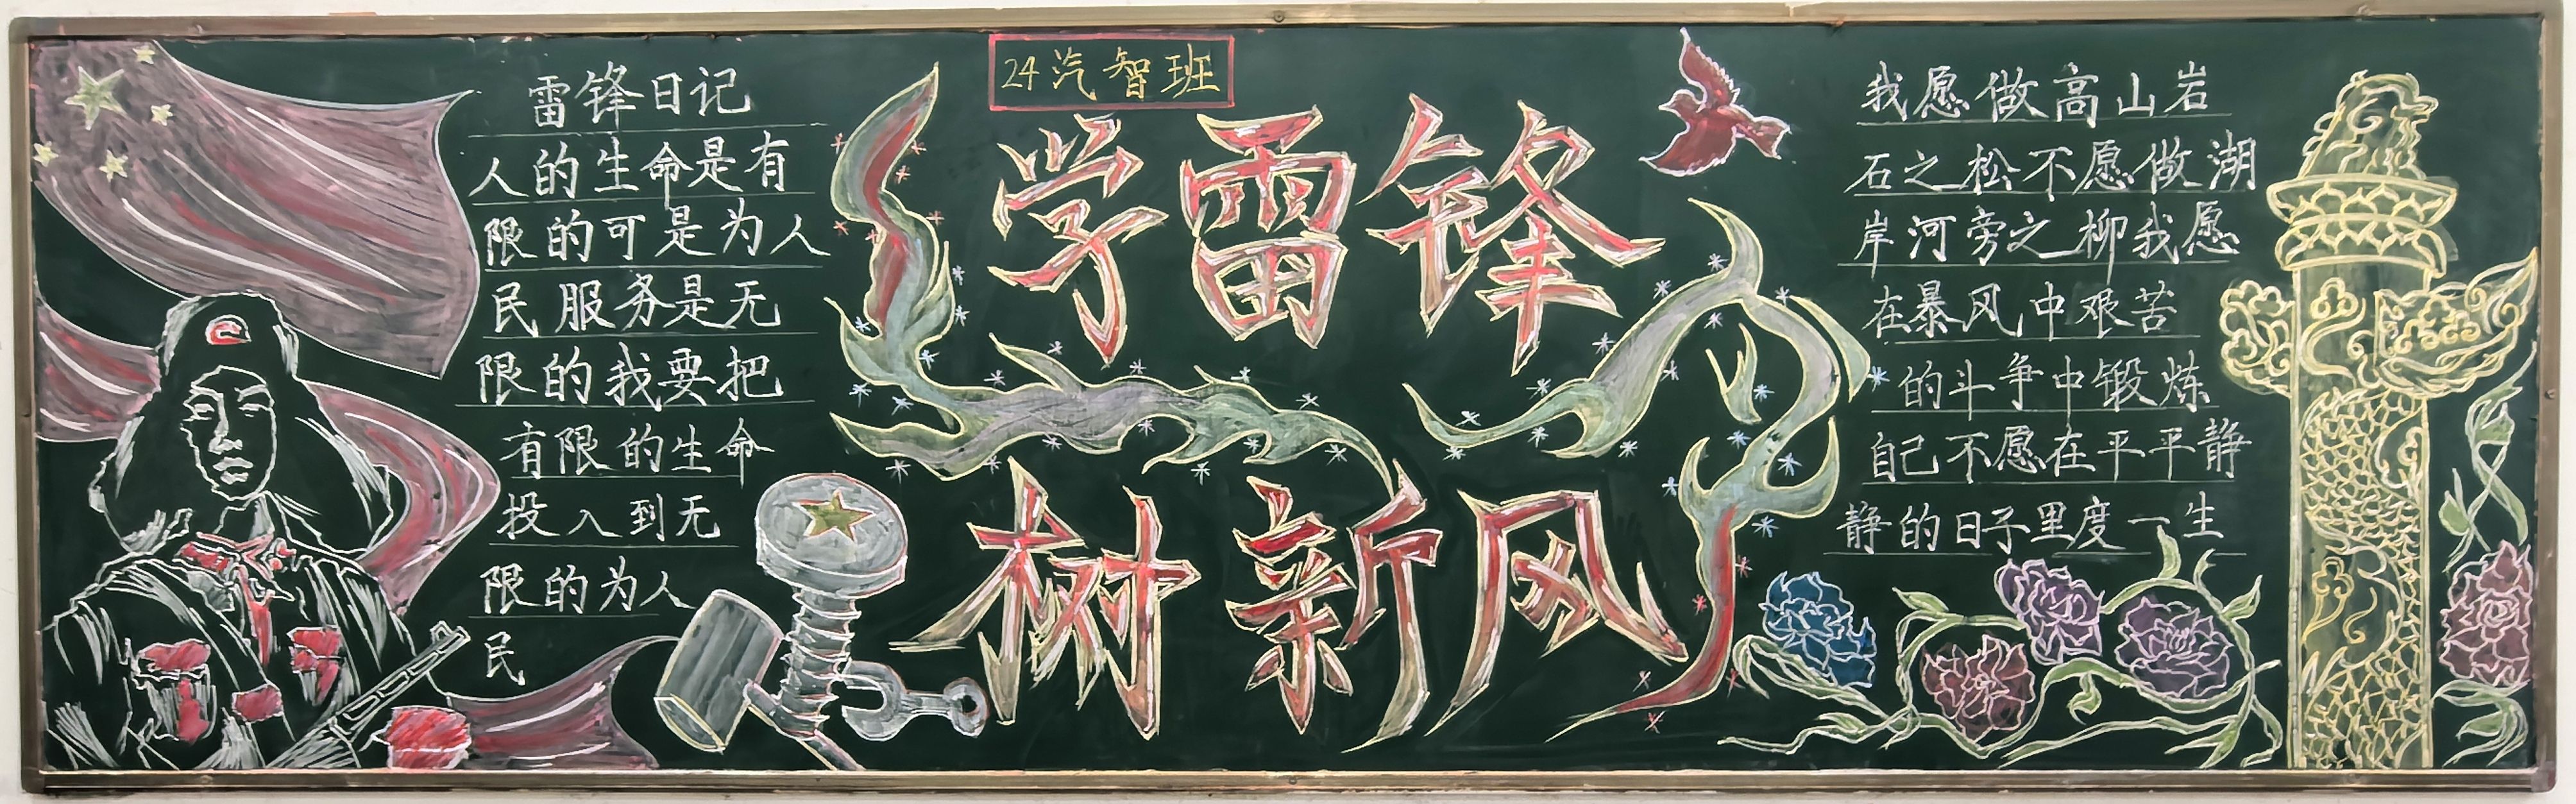 雷锋日记
人的生命是有
限的可是为人
民服务是无
限的我要把
有限的生命
投入到无
限的为人
民
24汽智班
学雷锋
树新风
我愿做高山岩
石之松不愿做湖
岸河旁之柳我愿
在暴风中艰苦
的斗争中锻炼
自己不愿在平平静
静的日子里度一生